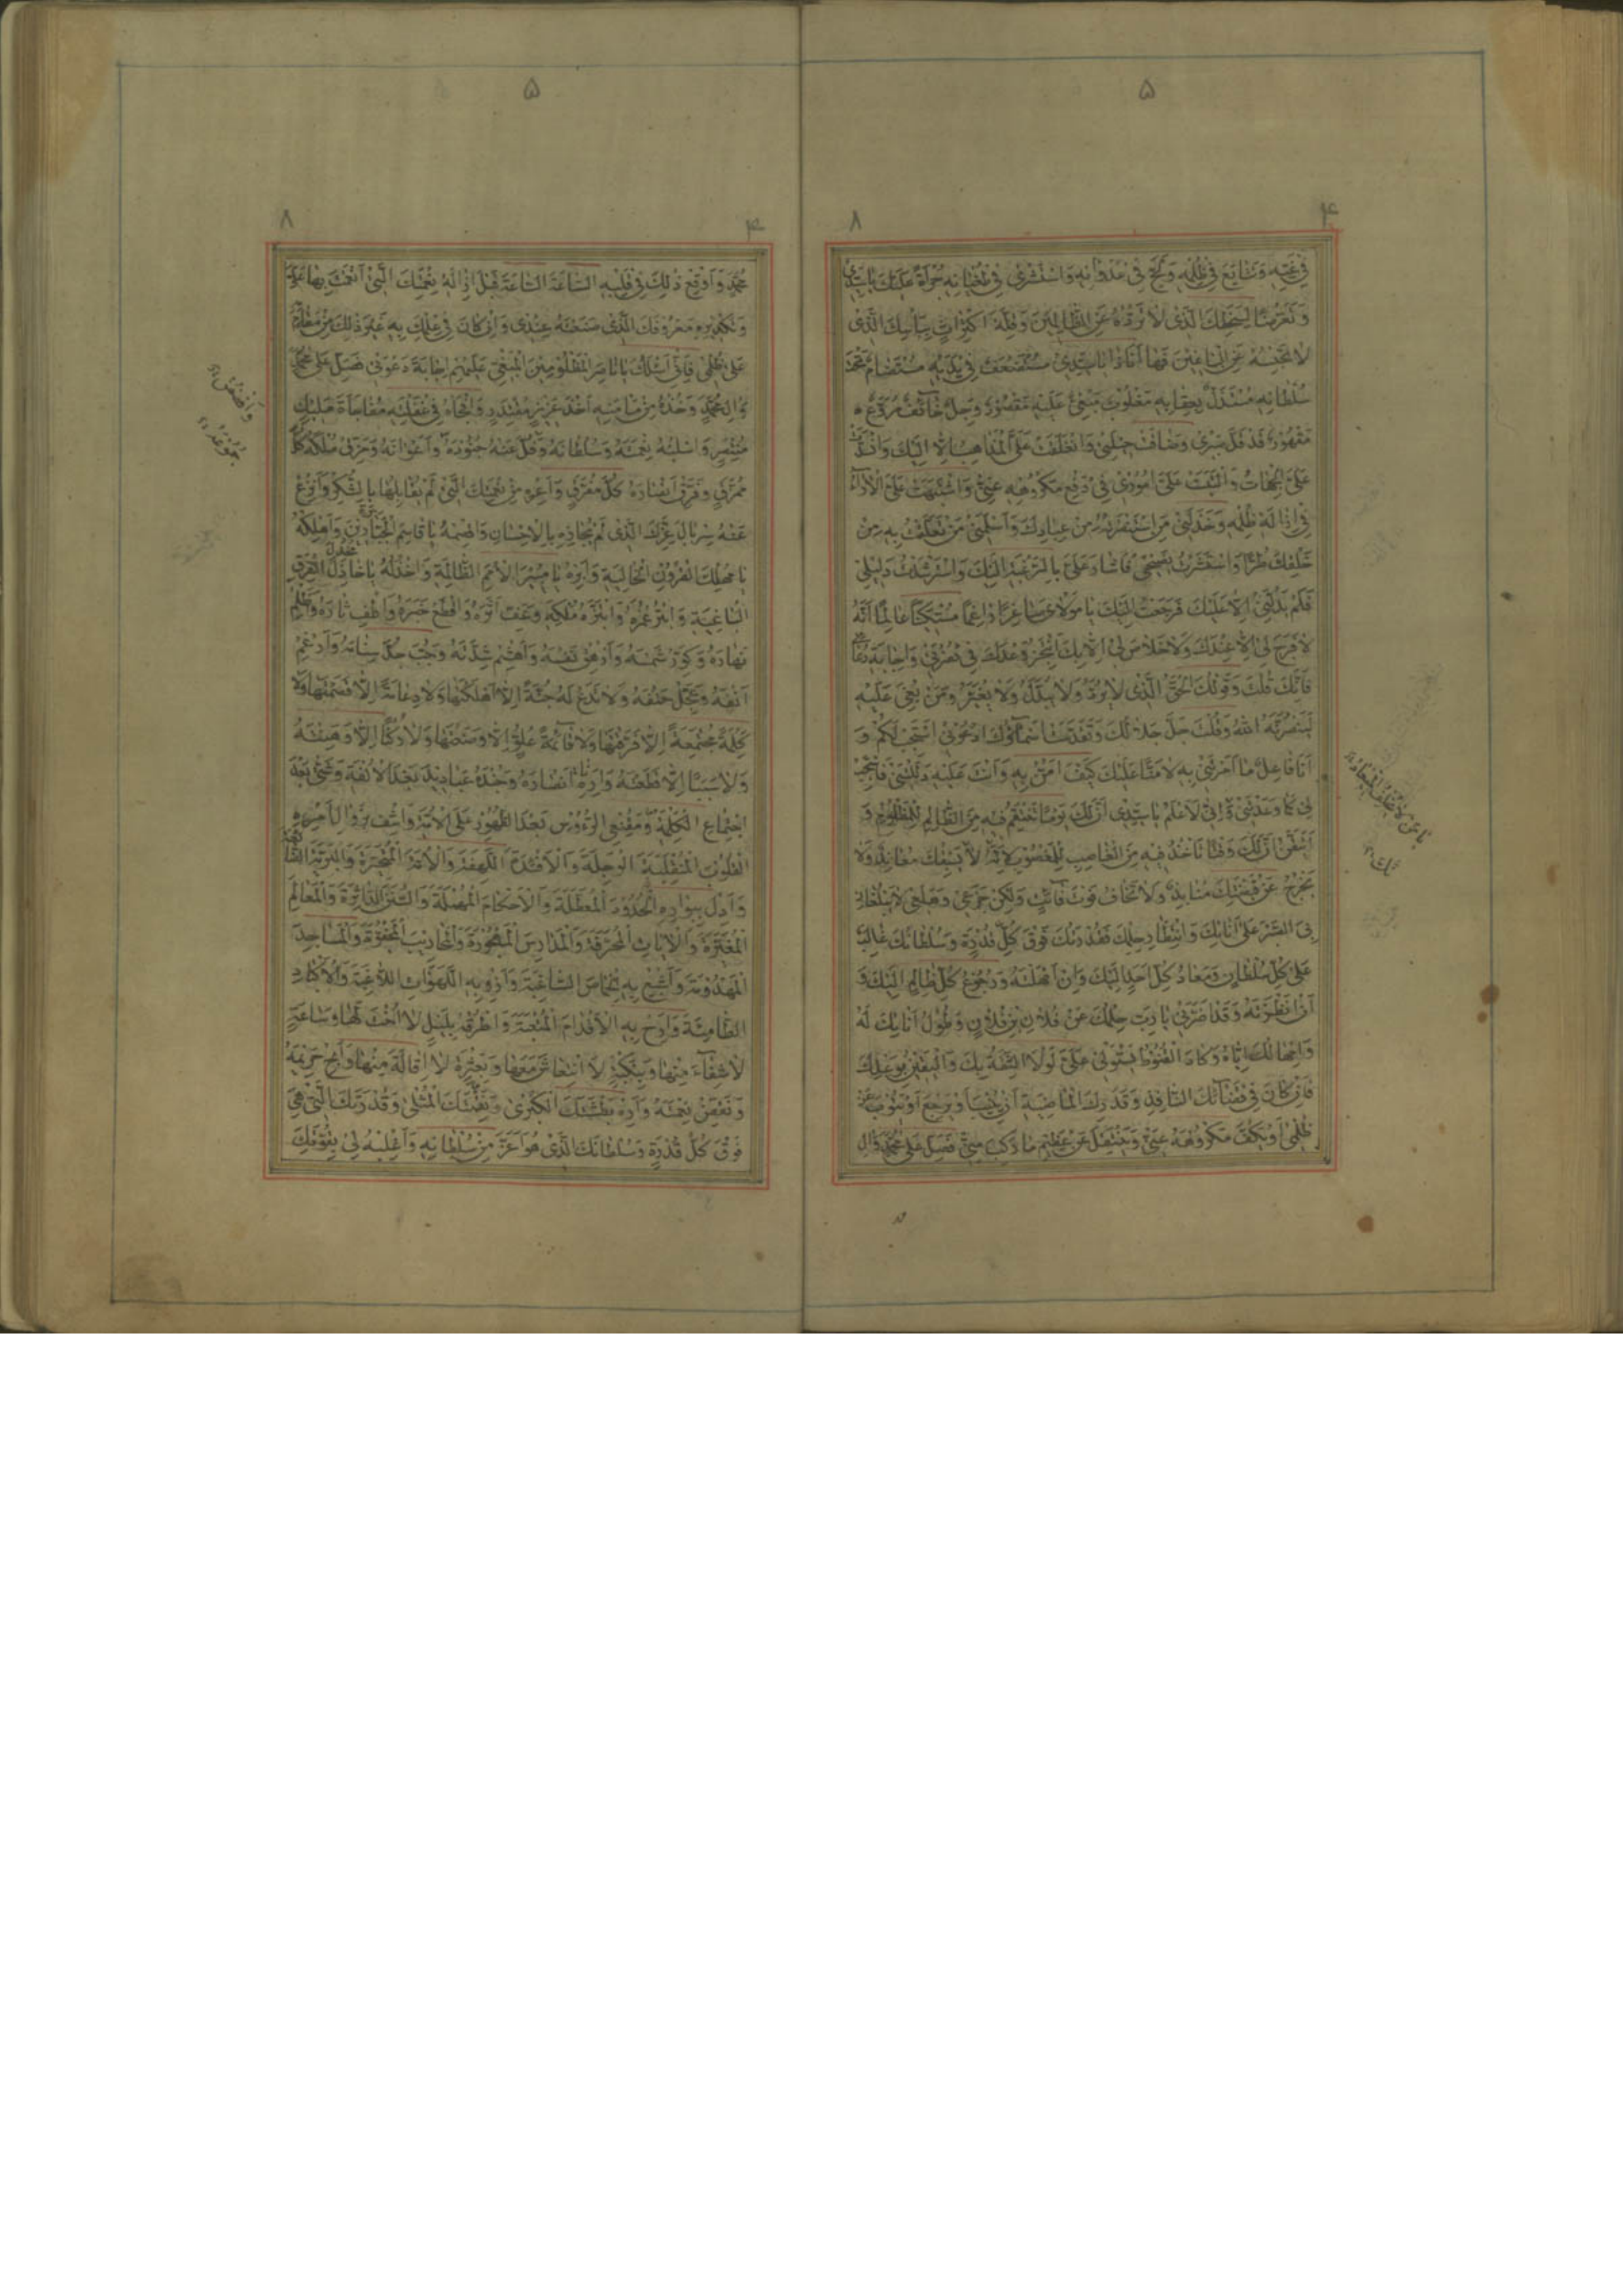 ۵
۴ ۸
فِي غَيِّهِ وَتَتَابَعَ فِي ظُلْمِهِ وَلَجَّ فِي عُدْوَانِهِ وَاسْتَشْرَى فِي طُغْيَانِهِ جُرْأَةً عَلَيْكَ يَا سَيِّدِي
وَتَعَرُّضًا لِسَخَطِكَ الَّذِي لَا تَرُدُّهُ عَنِ الظَّالِمِينَ وَقِلَّةَ اكْتِرَاثٍ بِبَأْسِكَ الَّذِي
لَا تَحْبِسُهُ عَنِ الْبَاغِينَ فَهَا أَنَا ذَا يَا سَيِّدِي مُسْتَضْعَفٌ فِي يَدَيْهِ مُسْتَضَامٌ تَحْتَ
سُلْطَانِهِ مُسْتَذَلٌّ بِعِقَابِهِ مَغْلُوبٌ مَبْغِيٌّ عَلَيْهِ مَقْصُودٌ وَجِلٌ خَائِفٌ مُرَوَّعٌ
مَقْهُورٌ قَدْ قَلَّ صَبْرِي وَضَاقَتْ حِيلَتِي وَانْغَلَقَتْ عَلَيَّ الْمَذَاهِبُ إِلَّا إِلَيْكَ وَانْسَدَّتْ
عَلَيَّ الْجِهَاتُ وَالْتَبَسَتْ عَلَيَّ أُمُورِي فِي دَفْعِ مَكْرُوهِهِ عَنِّي وَاشْتَبَهَتْ عَلَيَّ الْآرَاءُ
فِي إِزَالَةِ ظُلْمِهِ وَخَذَلَنِي مَنِ اسْتَنْصَرْتُهُ مِنْ عِبَادِكَ وَأَسْلَمَنِي مَنْ تَعَلَّقْتُ بِهِ مِنْ
خَلْقِكَ طُرًّا وَاسْتَشَرْتُ نَصِيحِي فَأَشَارَ عَلَيَّ بِالرَّغْبَةِ إِلَيْكَ وَاسْتَرْشَدْتُ دَلِيلِي
فَلَمْ يَدُلَّنِي إِلَّا عَلَيْكَ فَرَجَعْتُ إِلَيْكَ يَا مَوْلَايَ صَاغِرًا رَاغِمًا مُسْتَكِينًا عَالِمًا أَنَّهُ
لَا فَرَجَ لِي إِلَّا عِنْدَكَ وَلَا خَلَاصَ لِي إِلَّا بِكَ أَنْتَجِزُ وَعْدَكَ فِي نُصْرَتِي وَإِجَابَةِ دُعَائِي
فَإِنَّكَ قُلْتَ وَقَوْلُكَ الْحَقُّ الَّذِي لَا يُرَدُّ وَلَا يُبَدَّلُ وَلَا يُغَيَّرُ وَمَنْ بُغِيَ عَلَيْهِ
لَيَنْصُرَنَّهُ اللهُ وَقُلْتَ جَلَّ جَلَالُكَ وَتَقَدَّسَتْ أَسْمَاؤُكَ ادْعُونِي أَسْتَجِبْ لَكُمْ وَ
أَنَا فَاعِلٌ مَا أَمَرْتَنِي بِهِ لَا مَنًّا عَلَيْكَ كَيْفَ أَمُنُّ بِهِ وَأَنْتَ عَلَيْهِ دَلَلْتَنِي فَاسْتَجِبْ
لِي كَمَا وَعَدْتَنِي وَإِنِّي لَأَعْلَمُ يَا سَيِّدِي أَنَّ لَكَ يَوْمًا تَنْتَقِمُ فِيهِ مِنَ الظَّالِمِ لِلْمَظْلُومِ وَ
أَتَيَقَّنُ أَنَّ لَكَ وَقْتًا تَأْخُذُ فِيهِ مِنَ الْغَاصِبِ لِلْمَغْصُوبِ لِأَنَّهُ لَا يَسْبِقُكَ مُعَانِدٌ وَلَا
يَخْرُجُ عَنْ قَبْضَتِكَ مُنَابِذٌ وَلَا تَخَافُ فَوْتَ فَائِتٍ وَلَكِنْ جَزَعِي وَهَلَعِي لَا يَبْلُغَانِ
بِيَ الصَّبْرَ عَلَى أَنَاتِكَ وَانْتِظَارِ حِلْمِكَ فَقُدْرَتُكَ فَوْقَ كُلِّ قُدْرَةٍ وَسُلْطَانُكَ غَالِبٌ
عَلَى كُلِّ سُلْطَانٍ وَمَعَادُ كُلِّ أَحَدٍ إِلَيْكَ وَإِنْ أَمْهَلْتَهُ وَرُجُوعُ كُلِّ ظَالِمٍ إِلَيْكَ وَ
إِنْ أَنْظَرْتَهُ وَقَدْ أَضَرَّنِي يَا رَبِّ حِلْمُكَ عَنْ فُلَانِ بْنِ فُلَانٍ وَطُولُ أَنَاتِكَ لَهُ
وَإِمْهَالُكَ إِيَّاهُ وَكَادَ الْقُنُوطُ يَسْتَوْلِي عَلَيَّ لَوْلَا الثِّقَةُ بِكَ وَالْيَقِينُ بِوَعْدِكَ
فَإِنْ كَانَ فِي قَضَائِكَ النَّافِذِ وَقُدْرَتِكَ الْمَاضِيَةِ أَنْ يُنِيبَ أَوْ يَرْجِعَ أَوْ يَتُوبَ عَنْ
ظُلْمِي أَوْ يَكُفَّ مَكْرُوهَهُ عَنِّي وَيَنْتَقِلَ عَنْ عَظِيمِ مَا رَكِبَ مِنِّي فَصَلِّ عَلَى مُحَمَّدٍ وَآلِ
۵
۴ ۸
مُحَمَّدٍ وَأَوْقِعْ ذَلِكَ فِي قَلْبِهِ السَّاعَةَ السَّاعَةَ قَبْلَ إِزَالَةِ نِعْمَتِكَ الَّتِي أَنْعَمْتَ بِهَا عَلَيَّ
وَتَكْدِيرِهِ مَعْرُوفَكَ الَّذِي صَنَعْتَهُ عِنْدِي وَإِنْ كَانَ فِي عِلْمِكَ بِهِ غَيْرُ ذَلِكَ مِنْ مُقَامِهِ
عَلَى ظُلْمِي فَإِنِّي أَسْئَلُكَ يَا نَاصِرَ الْمَظْلُومِينَ الْمَبْغِيِّ عَلَيْهِمْ إِجَابَةَ دَعْوَتِي فَصَلِّ عَلَى مُحَمَّدٍ
وَآلِ مُحَمَّدٍ وَخُذْهُ مِنْ مَأْمَنِهِ أَخْذَ عَزِيزٍ مُقْتَدِرٍ وَافْجَأْهُ فِي غَفْلَتِهِ مُفَاجَاةَ مَلِيكٍ
مُنْتَصِرٍ وَاسْلُبْهُ نِعْمَتَهُ وَسُلْطَانَهُ وَفُلَّ عَنْهُ جُنُودَهُ وَأَعْوَانَهُ وَمَزِّقْ مُلْكَهُ كُلَّ
مُمَزَّقٍ وَفَرِّقْ أَنْصَارَهُ كُلَّ مُفَرَّقٍ وَأَعِرْهُ مِنْ نِعْمَتِكَ الَّتِي لَمْ يُقَابِلْهَا بِالشُّكْرِ وَانْزِعْ
عَنْهُ سِرْبَالَ عِزِّكَ الَّذِي لَمْ يُجَازِهِ بِالْإِحْسَانِ وَاقْصِمْهُ يَا قَاصِمَ الْجَبَّارِينَ وَأَهْلِكْهُ
يَا مُهْلِكَ الْقُرُونِ الْخَالِيَةِ وَأَبِرْهُ يَا مُبِيرَ الْأُمَمِ الظَّالِمَةِ وَاخْذُلْهُ يَا خَاذِلَ الْفِرَقِ
الْبَاغِيَةِ وَابْتُرْ عُمُرَهُ وَابْتَزَّهُ مُلْكَهُ وَعَفِّ أَثَرَهُ وَاقْطَعْ خَبَرَهُ وَأَطْفِ نَارَهُ وَأَظْلِمْ
نَهَارَهُ وَكَوِّرْ شَمْسَهُ وَأَزْهِقْ نَفْسَهُ وَاهْشِمْ شِدَّتَهُ وَجُبَّ سَنَامَهُ وَأَرْغِمْ
أَنْفَهُ وَعَجِّلْ حَتْفَهُ وَلَا تَدَعْ لَهُ جُنَّةً إِلَّا هَتَكْتَهَا وَلَا دِعَامَةً إِلَّا قَصَمْتَهَا وَلَا
كَلِمَةً مُجْتَمِعَةً إِلَّا فَرَّقْتَهَا وَلَا قَائِمَةَ عُلُوٍّ إِلَّا وَضَعْتَهَا وَلَا رُكْنًا إِلَّا وَهَنْتَهُ
وَلَا سَبَبًا إِلَّا قَطَعْتَهُ وَأَرِهِ أَنْصَارَهُ وَجُنْدَهُ عَبَادِيدَ بَعْدَ الْأُلْفَةِ وَشَتَّى بَعْدَ
اجْتِمَاعِ الْكَلِمَةِ وَمُقْنِعِي الرُّءُوسِ بَعْدَ الظُّهُورِ عَلَى الْأُمَّةِ وَاشْفِ بِزَوَالِ أَمْرِهِ
الْقُلُوبَ الْمُنْقَلِبَةَ الْوَجِلَةَ وَالْأَفْئِدَةَ اللَّهِفَةَ وَالْأُمَّةَ الْمُتَحَيِّرَةَ وَالْبَرِيَّةَ الضَّائِعَةَ
وَأَدِلْ بِبَوَارِهِ الْحُدُودَ الْمُعَطَّلَةَ وَالْأَحْكَامَ الْمُهْمَلَةَ وَالسُّنَنَ الدَّاثِرَةَ وَالْمَعَالِمَ
الْمُغَيَّرَةَ وَالْآيَاتِ الْمُحَرَّفَةَ وَالْمَدَارِسَ الْمَهْجُورَةَ وَالْمَحَارِيبَ الْمَجْفُوَّةَ وَالْمَسَاجِدَ
الْمَهْدُومَةَ وَأَشْبِعْ بِهِ الْخِمَاصَ السَّاغِبَةَ وَأَرْوِ بِهِ اللَّهَوَاتِ اللَّاغِبَةَ وَالْأَكْبَادَ
الظَّامِئَةَ وَأَرِحْ بِهِ الْأَقْدَامَ الْمُتْعَبَةَ وَاطْرُقْهُ بِلَيْلٍ لَا أُخْتَ لَهَا وَسَاعَةٍ
لَا شِفَاءَ مِنْهَا وَبِنَكْبَةٍ لَا انْتِعَاشَ مَعَهَا وَبِعَثْرَةٍ لَا إِقَالَةَ مِنْهَا وَأَبِحْ حَرِيمَهُ
وَنَغِّصْ نِعْمَتَهُ وَأَرِهِ بَطْشَتَكَ الْكُبْرَى وَنَقِمَتَكَ الْمُثْلَى وَقُدْرَتَكَ الَّتِي هِيَ
فَوْقَ كُلِّ قُدْرَةٍ وَسُلْطَانَكَ الَّذِي هُوَ أَعَزُّ مِنْ سُلْطَانِهِ وَاغْلِبْهُ لِي بِقُوَّتِكَ